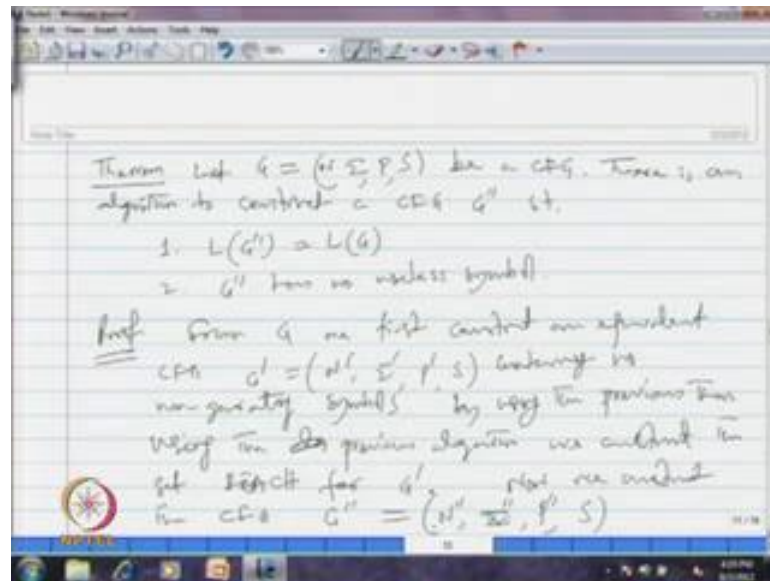 Theorem Let G = (N, Σ, P, S) be a CFG. There is an
algorithm to construct a CFG G'' st.
1. L(G'') = L(G)
2. G'' has no useless symbol.
Proof From G we first construct an equivalent
CFG G' = (N', Σ', P', S) containing no
non-generating symbols by using the previous thm
Using the previous algorithm we construct the
set REACH for G'. Now we construct
the CFG G'' = (N'', Σ'', P'', S)
NPTEL